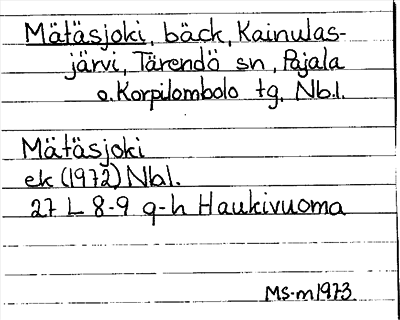 Mätäsjoki, bäck, Kainulas-
järvi, Tärendö sn, Pajala
o. Korpilombolo tg, Nb.l.
Mätäsjoki
ek (1972) Nbl.
27 L 8-9 g-h Haukivuoma
MS-m1973